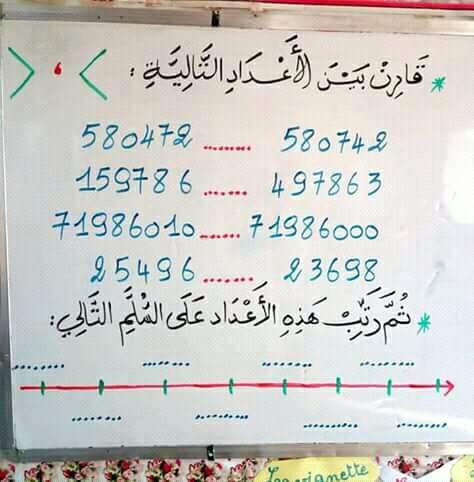 * قَارِنْ بَيْنَ الأَعْدَادِ التَّالِيَّةِ : < ، >
580472 ....... 580742
159786 ....... 497863
71986010 ....... 71986000
25496 ....... 23698
* ثُمَّ رَتِّبْ هَذِهِ الأَعْدَاد عَلَى السُّلَّمِ التَّالِي :
....... ....... ....... .......
....... ....... ....... .......
vignette